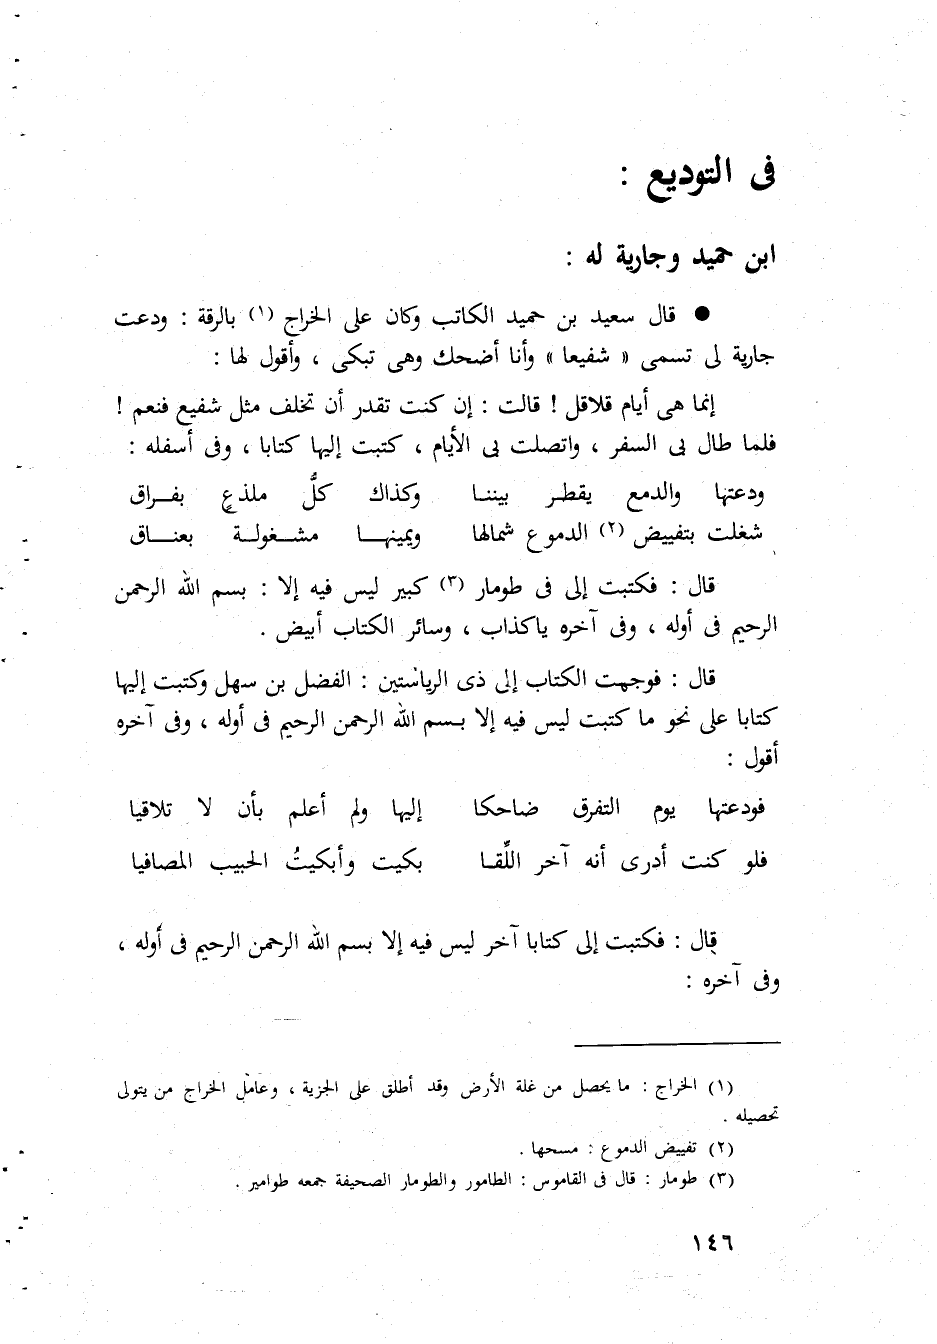 فى التوديع :
ابن حميد وجارية له :
● قال سعيد بن حميد الكاتب وكان على الخراج (١) بالرقة : ودعت
جارية لى تسمى « شفيعا » وأنا أضحك وهى تبكى ، وأقول لها :
إنما هى أيام قلاقل ! قالت : إن كنت تقدر أن تخلف مثل شفيع فنعم !
فلما طال بى السفر ، واتصلت بى الأيام ، كتبت إليها كتابا ، وفى أسفله :
ودعتها والدمع يقطر بيننا وكذاك كلُّ ملذعٍ بفراق
شغلت بتفييض (٢) الدموع شمالها ويمينها مشغولة بعناق
قال : فكتبت إلى فى طومار (٣) كبير ليس فيه إلا : بسم الله الرحمن
الرحيم فى أوله ، وفى آخره ياكذاب ، وسائر الكتاب أبيض .
قال : فوجهت الكتاب إلى ذى الرياستين : الفضل بن سهل وكتبت إليها
كتابا على نحو ما كتبت ليس فيه إلا بسم الله الرحمن الرحيم فى أوله ، وفى آخره
أقول :
فودعتها يوم التفرق ضاحكا إليها ولم أعلم بأن لا تلاقيا
فلو كنت أدرى أنه آخر اللِّقا بكيت وأبكيتُ الحبيب المصافيا
قال : فكتبت إلى كتابا آخر ليس فيه إلا بسم الله الرحمن الرحيم فى أوله ،
وفى آخره :
(١) الخراج : ما يحصل من غلة الأرض وقد أطلق على الجزية ، وعامل الخراج من يتولى
تحصيله .
(٢) تفييض الدموع : مسحها .
(٣) طومار : قال فى القاموس : الطامور والطومار الصحيفة جمعه طوامير .
١٤٦